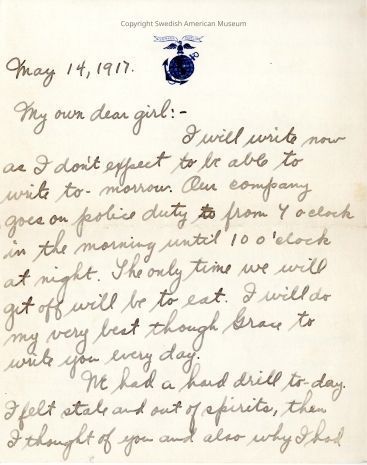 Copyright Swedish American Museum
May 14, 1917.
My own dear girl:-
I will write now
as I don't expect to be able to
write to-morrow. Our company
goes on police duty to from 7 oclock
in the morning until 10 o'clock
at night. The only time we will
get off will be to eat. I will do
my very best though Grace to
write you every day.
We had a hard drill to-day.
I felt stale and out of spirits, then
I thought of you and also why I had